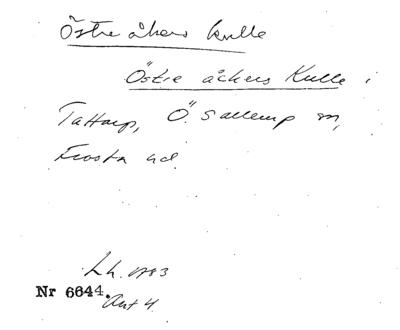 Östre åkers kulle
Östre åkers Kulle i
Tattarp, Ö. Sallerup sn,
Frosta hd.
Lh. 1783
Nr 6644.
Akt 4.